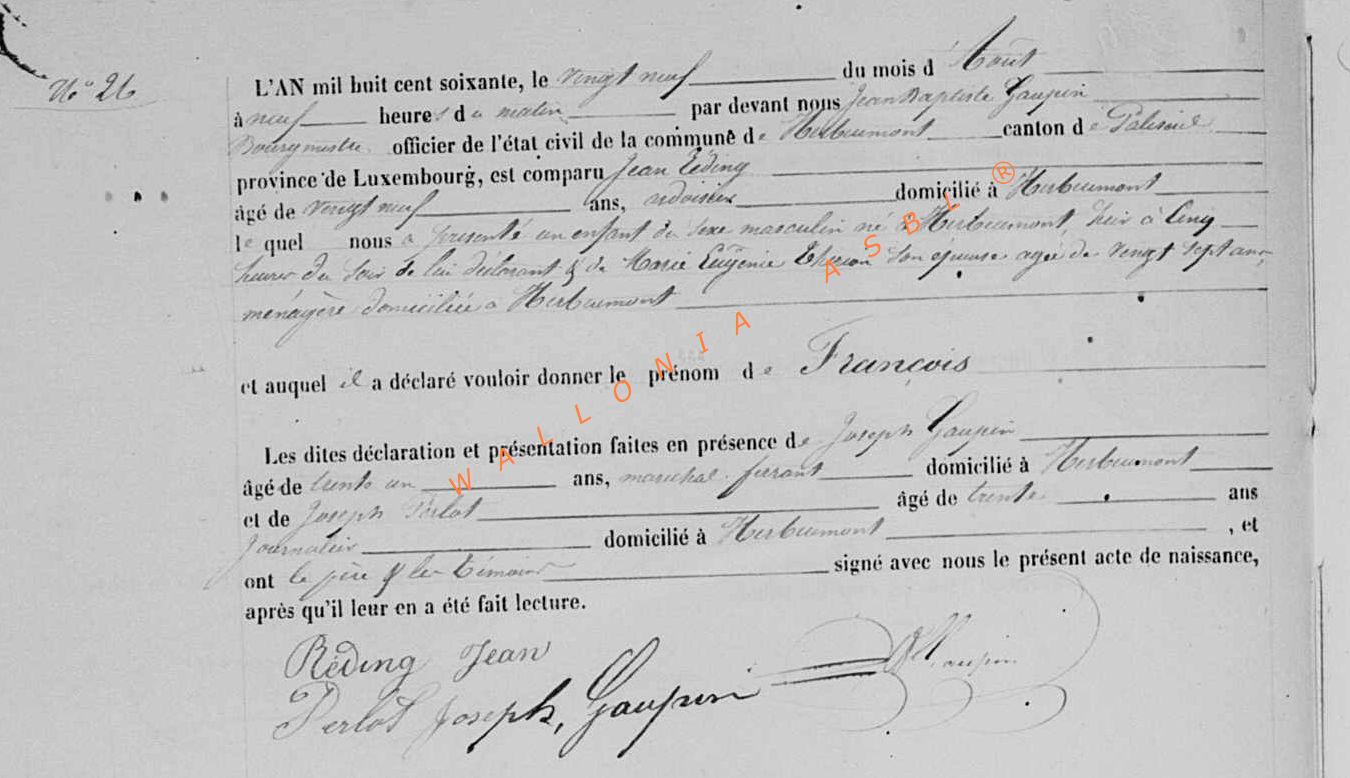 N° 26
L'AN mil huit cent soixante, le vingt neuf du mois d'Août
à neuf heures du matin par devant nous Jean Baptiste Gaupin
Bourgmestre officier de l'état civil de la commune de Herbeumont canton de Paliseul
province de Luxembourg, est comparu Jean Reding
âgé de vingt neuf ans, ardoisier domicilié à Herbeumont
lequel nous a présenté un enfant du sexe masculin né à Herbeumont, hier à Cinq
heures du soir de lui déclarant & de Marie Eugénie Thirion son épouse agée de vingt sept ans
ménagère domiciliée a Herbeumont
et auquel il a déclaré vouloir donner le prénom de François
Les dites déclaration et présentation faites en présence de Joseph Gaupin
âgé de trente un ans, maréchal ferrant domicilié à Herbeumont
et de Joseph Perlot âgé de trente ans
Journalier domicilié à Herbeumont, et
ont le père & les témoins signé avec nous le présent acte de naissance,
après qu'il leur en a été fait lecture.
Réding Jean
Perlot Joseph, Gaupin
WALLONIA ASBL ®